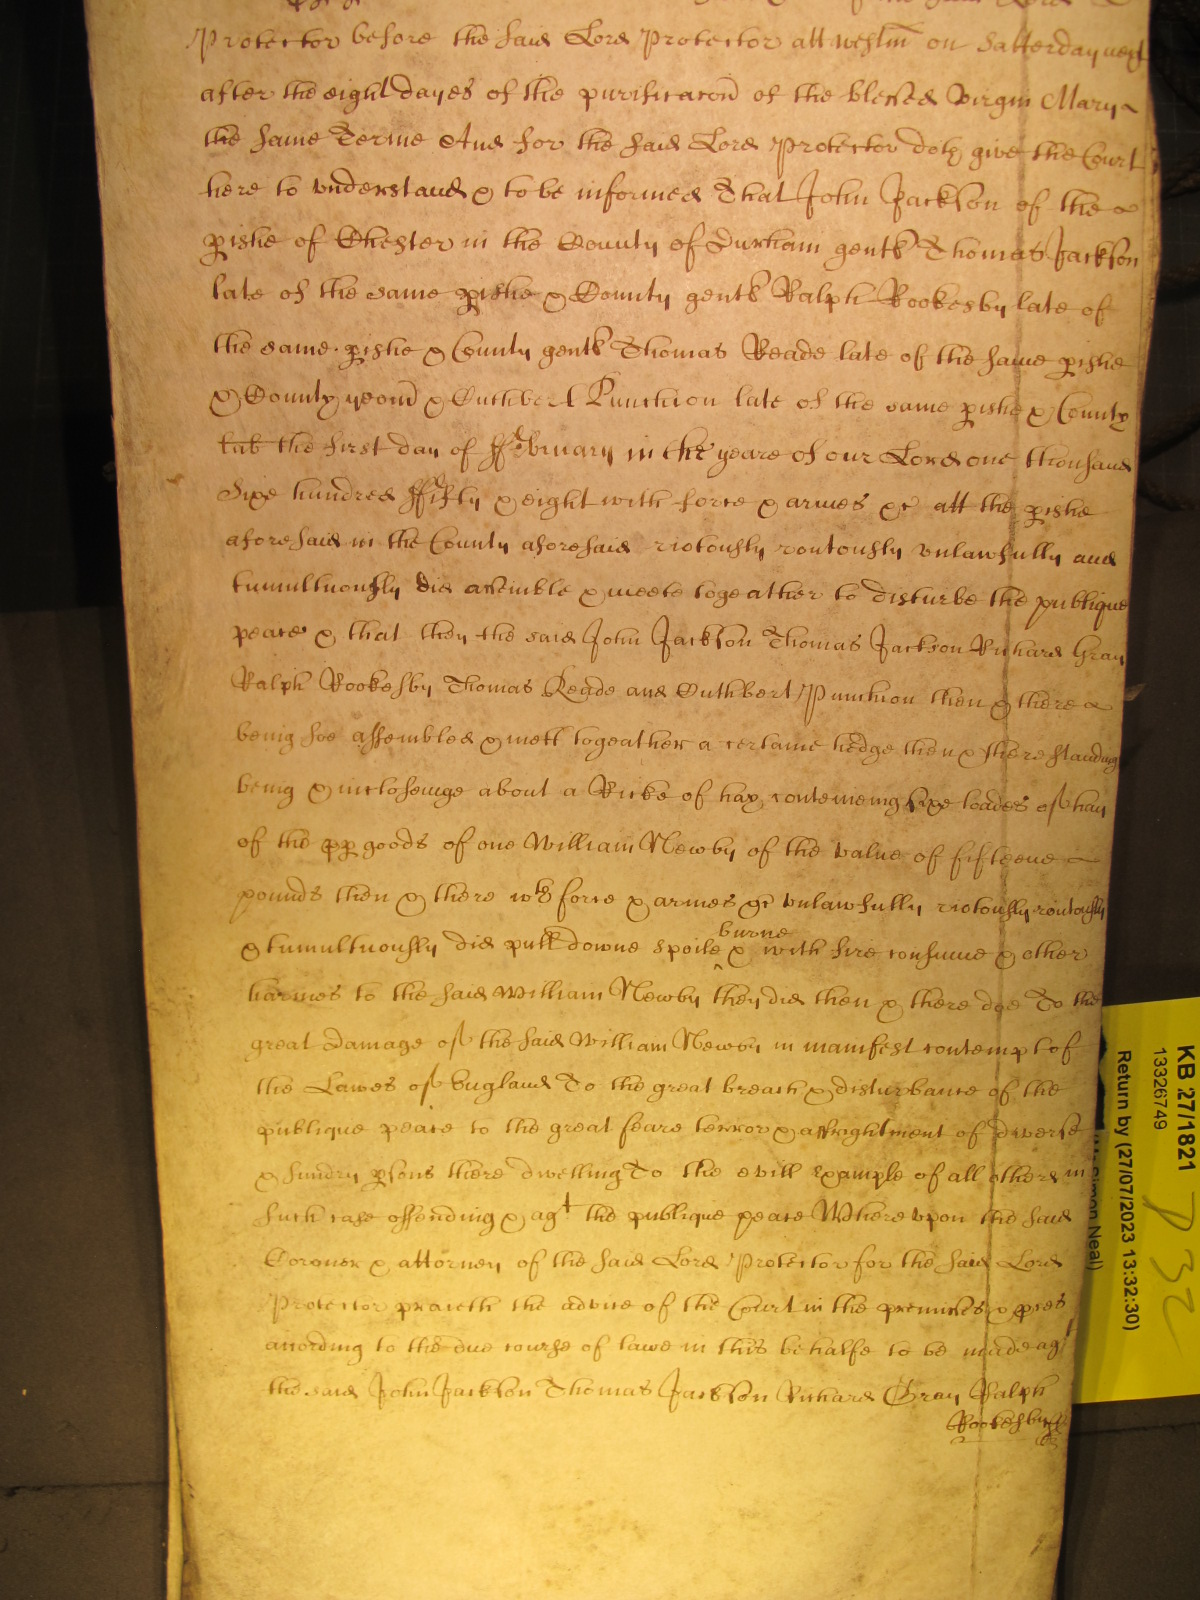 Protector before the said Lord Protector att westm on Satterday next
after the eight dayes of the purificacon of the blessed Virgin Mary
the same Terme And for the said Lord Protector doth give the Court
here to vnderstand & to be informed That John Jackson of the
pishe of Chester in the County of Durham gent Thomas Jackson
late of the same pishe & County gent Ralph Rookesby late of
the same pishe & County gent Thomas Reade late of the same pishe
& County yeom & Cuthbert Punchion late of the same pishe & County
the first day of ffebruary in the yeare of our Lord one thousand
Sixe hundred ffifty & eight with force & armes &c att the pishe
aforesaid in the County aforesaid riotously routously vnlawfully and
tumultuously did assemble & meete togeather to disturbe the publique
peace & that they the said John Jackson Thomas Jackson Richard Gray
Ralph Rookesby Thomas Reade and Cuthbert Punchion then & there
being soe assembled & mett togeather a certaine hedge then & there standing
being & incloseinge about a Ricke of hay conteineing sixe loades of hay
of the pp goods of one William Newby of the value of fifteene
pounds then & there wth force & armes &c vnlawfully riotously routously
& tumultuously did pull downe spoile burne & with fire consume & other
harmes to the said William Newby they did then & there doe To the
great damage of the said William Newby in manifest contempt of
the Lawes of England To the great breach & disturbance of the
publique peace to the great feare terror & affrightment of diverse
& sundry psons there dwelling To the evill example of all others in
such case offending & agt the publique peace Whereupon the said
Coroner & attorney of the said Lord Protector for the said Lord
Protector prayeth the advice of the Court in the premisses & pces
according to the due course of lawe in this behalfe to be made agt
the said John Jackson Thomas Jackson Richard Gray Ralph
Rookesby
KB 27/1821
13326749
Return by (27/07/2023 13:32:30)
Simon Neal)